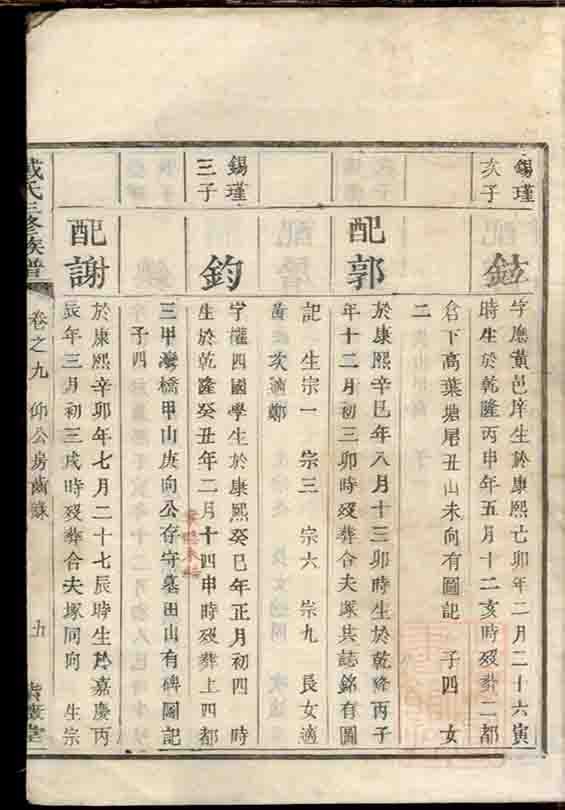 錫瑾
次子
鉉
字應黃邑庠生於康熙亡卯年二月二十六寅
時生於乾隆丙申年五月十二亥時歿葬二都
倉下高葉塘尾丑山未向有圖記 子四 女
二
配郭
於康熙辛巳年八月十三卯時生於乾隆丙子
年十二月初三卯時歿葬合夫塚其誌銘有圖
記 生宗一 宗三 宗六 宗九 長女適
黃 次適鄭
錫瑾
三子
鈞
字權四國學生於康熙癸巳年正月初四 時
生於乾隆癸丑年二月十四申時歿葬上四都
三甲灣橋甲山庚向公存守墓田山有碑圖記
子四
配謝
於康熙辛卯年七月二十七辰時生於嘉慶丙
辰年三月初三戌時歿葬合夫塚同向 生宗
戴氏三修族譜
卷之九 仰公房齒錄